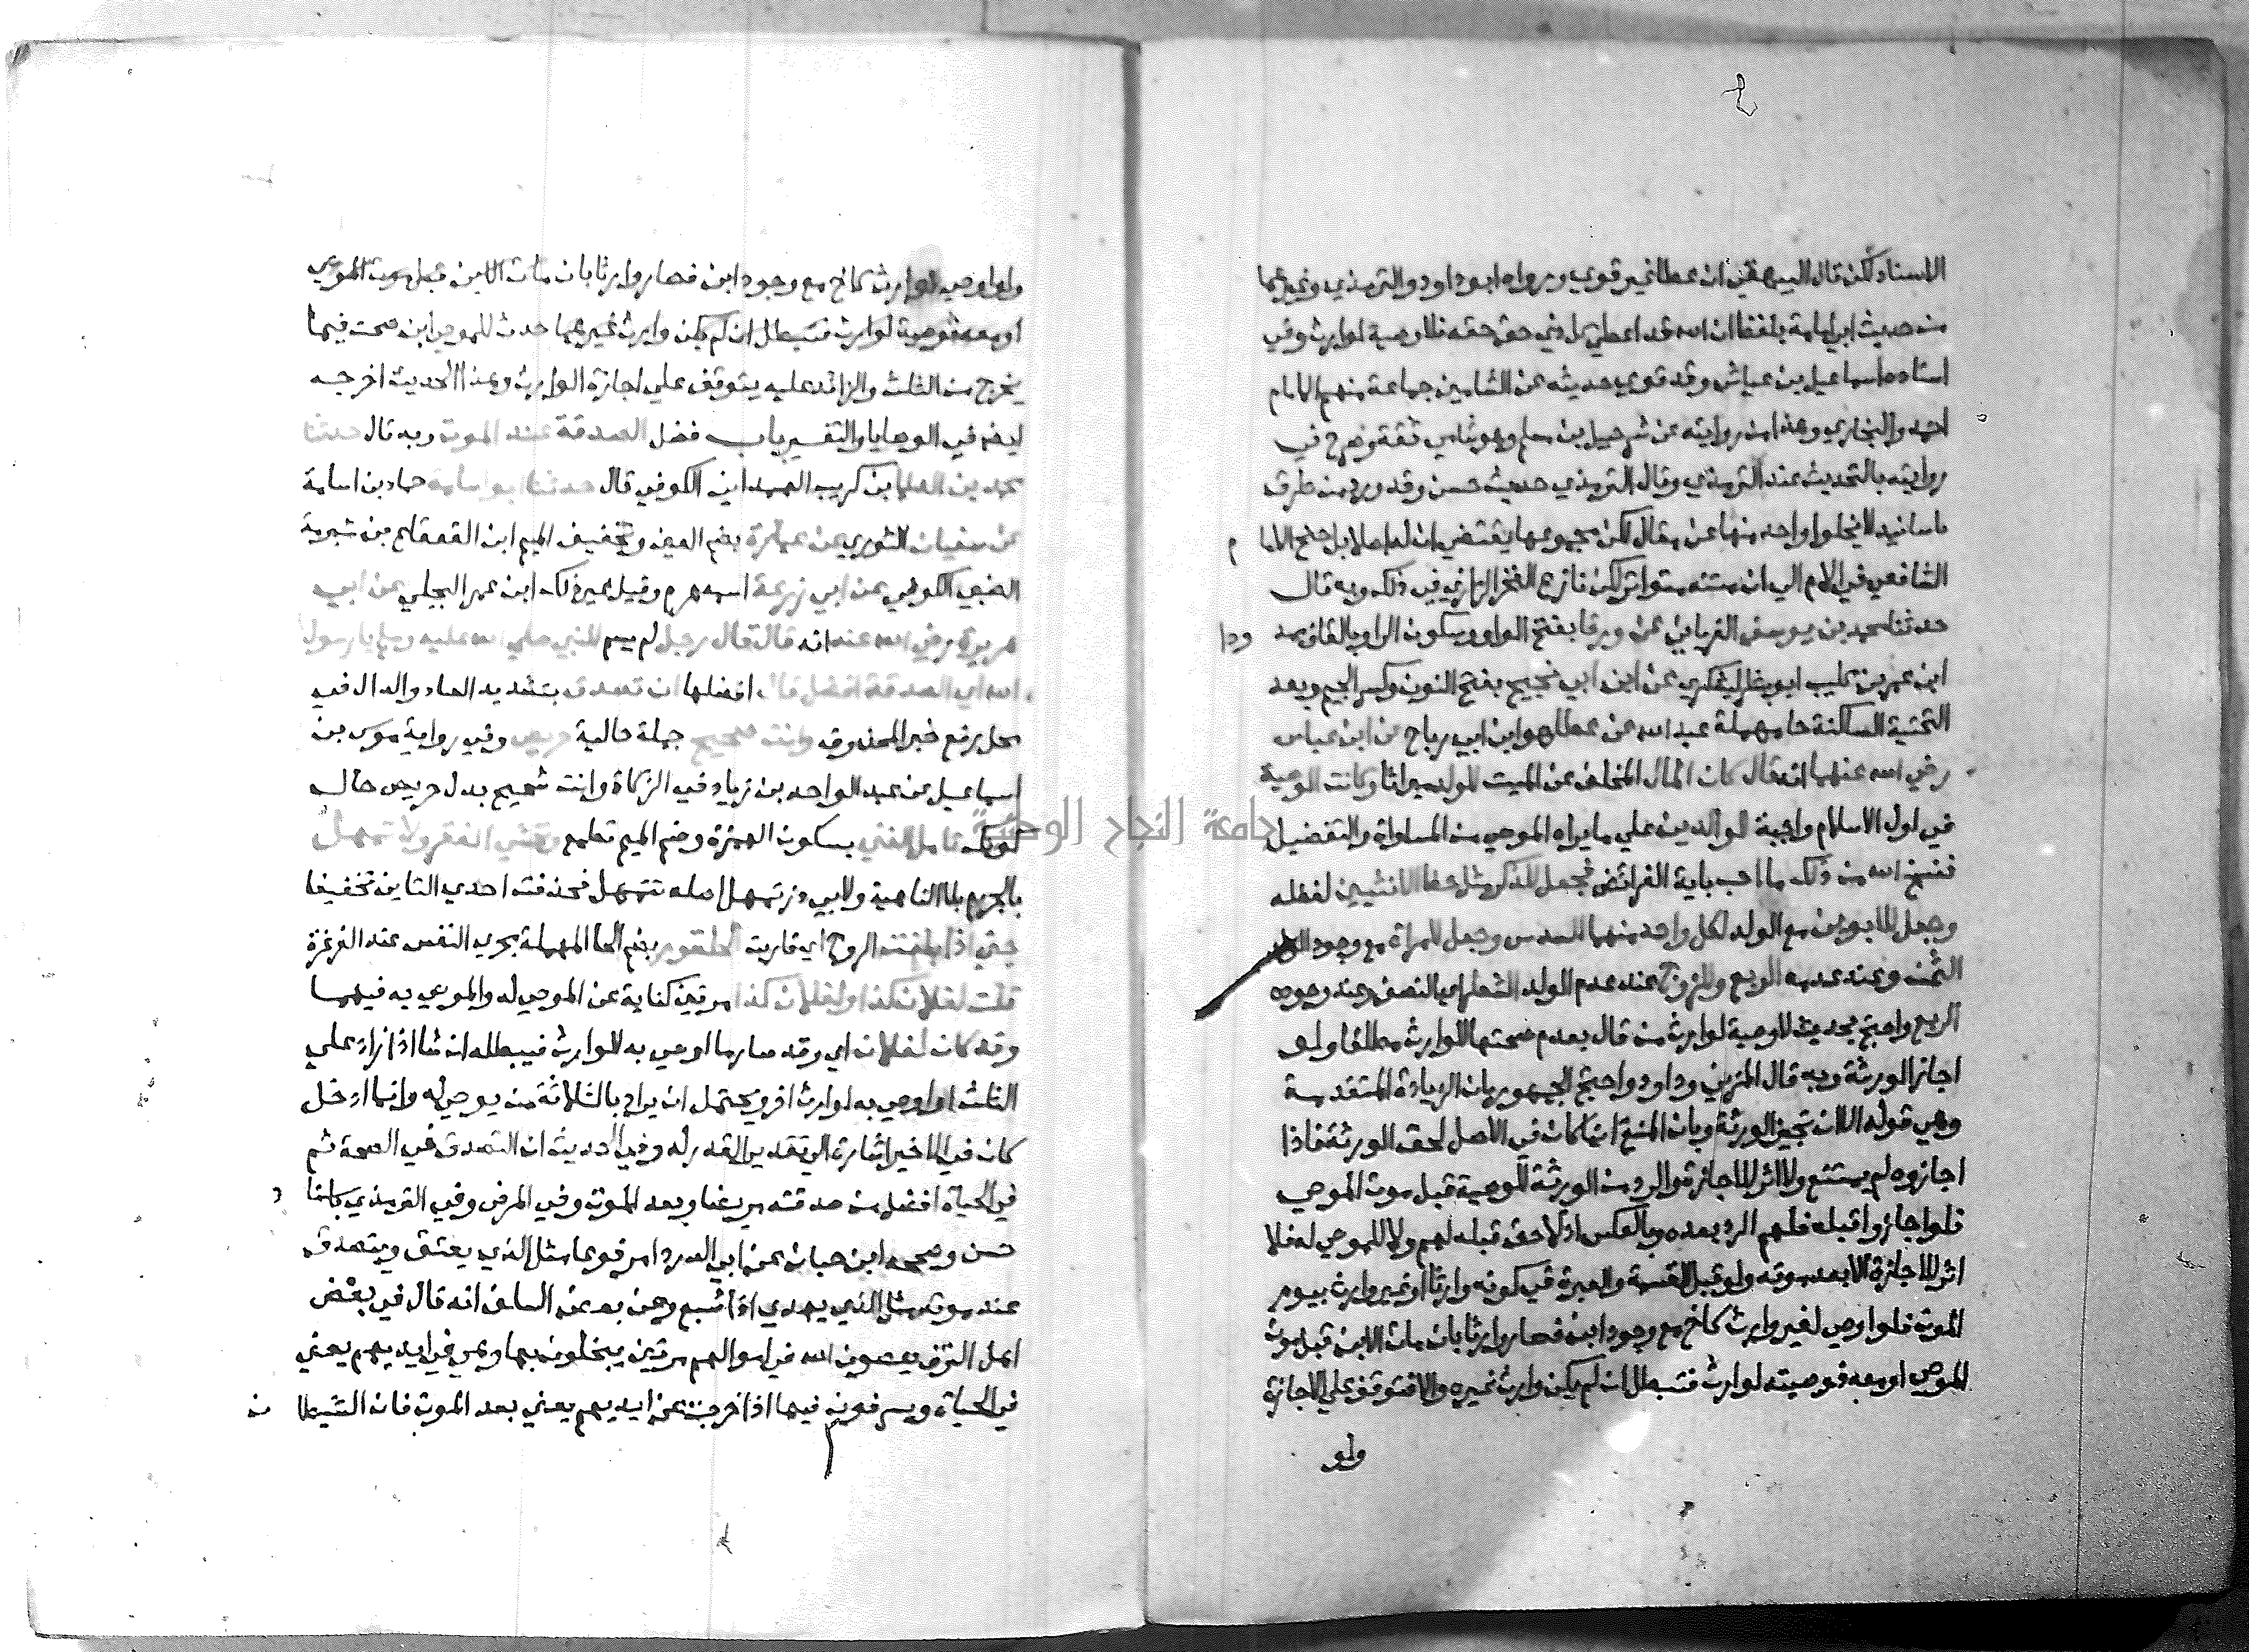 الاسناد لكن قال البيهقي ان عطا غير قوي ورواه ابو داود والترمذي وغيرهما
من حديث ابي امامة بلفظ ان الله قد اعطي كل ذي حق حقه فلا وصية لوارث وفي
اسناده اسماعيل بن عياش وقد قوي حديثه عن الشاميين جماعة منهم الامام
احمد والبخاري وهذا من روايته عن شرحبيل بن مسلم وهو شامي ثقة وصرح في
روايته بالتحديث عند الترمذي وقال الترمذي حديث حسن وقد ورد من طرق
باسانيد لا يخلوا واحد منها عن مقال لكن مجموعها يقتضي ان له اصلا بل جنح الاما م
الشافعي في الام الي ان متنه متواتر لكن نازع الفخر الرازي في ذلك وبه قال
حدثنا محمد بن يوسف الفريابي عن ورقا بفتح الواو وسكون الرا وبالقاف ممد ودا
ابن عمر بن كليب ابو بشر اليشكري عن ابن ابي نجيح بفتح النون وكسر الجيم وبعد
التحتية الساكنة حا مهملة عبد الله عن عطا هو ابن ابي رباح عن ابن عباس
رضي الله عنهما انه قال كان المال المخلف عن الميت للولد ميراثا وكانت الوصية
في اول الاسلام واجبة للوالدين علي ما يراه الموصي من المساواة والتفضيل
فنسخ الله من ذلك ما احب باية الفرائض فجعل للذكر مثل حظ الانثيين لفضله
وجعل للابوين مع الولد لكل واحد منهما السدس وجعل للمراة مع وجود الولد
الثمن وعند عدمه الربع وللزوج عند عدم الولد الشطر اي النصف وعند وجوده
الربع واحتج بحديث لا وصية لوارث من قال بعدم صحتها للوارث مطلقا ولو
اجاز الورثة وبه قال المزني وداود واحتج الجمهور بان الزيادة المتقدمة
وهي قوله الا ان تجيز الورثة وبان المنع انما كان في الاصل لحق الورثة فاذا
اجازوه لم يمتنع ولا اثر للاجازة والرد من الورثة للوصية قبل موت الموصي
فلو اجازوا قبله فلهم الرد بعده وبالعكس اذ لا حق قبله لهم ولا للموصي له فلا
اثر للاجازة الا بعد موته ولو قبل القسمة والعبرة في كونه وارثا او غير وارث بيوم
الموت فلو اوصي لغير وارث كاخ مع وجود ابن فصار وارثا بان مات الابن قبل موت
الموصي او معه فوصيته لوارث فتبطل ان لم يكن وارث غيره والا فتوقف علي الاجازة
ولو
ولو اوصي لوارث كاخ مع وجود ابن فصار وارثا بان مات الابن قبل موت الموصي
او معه فوصية لوارث فتبطل ان لم يكن وارث غيرهما حدث للموصي ابن صحت فيما
يخرج من الثلث والزائد عليه يتوقف علي اجازة الوارث وهذا الحديث اخرجه
ايضا في الوصايا والتفسير باب فضل الصدقة عند الموت وبه قال حدثنا
محمد بن العلا ابن كريب الهمداني الكوفي قال حدثنا ابو اسامة حماد بن اسامة
عن سفيان الثوري عن عمارة بضم العين وتخفيف الميم ابن القعقاع بن شبرمة
الضبي الكوفي عن ابي زرعة اسمه هرم وقيل غير ذلك ابن عمر البجلي عن ابي
هريرة رضي الله عنه انه قال قال رجل لم يسم للنبي صلي الله عليه وسلم يا رسول
الله اي الصدقة افضل قال افضلها ان تصدق بتشديد الصاد والدال في
محل رفع خبر المحذوف وانت صحيح جملة حالية حريص وفي رواية موسي بن
اسماعيل عن عبد الواحد بن زياد في الزكاة وانت شحيح بدل حريص حال
كونك تامل الغني بسكون الهمزة وضم الميم تطمع وتخشي الفقر ولا تمهل
بالجزم بلا الناهية ولابي ذر تمهل اصله تتمهل فحذفت احدي التاين تخفيفا
حتي اذا بلغت الروح اي قاربت الحلقوم بضم الحا المهملة مجري النفس عند الغرغرة
قلت لفلان كذا ولفلان كذا مرتين كناية عن الموصي له والموصي به فيهما
وقد كان لفلان اي وقد صار ما اوصي به للوارث فيبطله ان شا اذا زاد علي
الثلث او اوصي به لوارث اخر ويحتمل ان يراد بالثلاثة من يوصي له وانما ادخل
كان في الاخير اشارة الي تقدير القدر له وفي الحديث ان التصدق في الصحة ثم
في الحياة افضل من صدقته مريضا وبعد الموت وفي المرض وفي الترمذي باسنا د
حسن وصححه ابن حبان عن ابي الدردا مرفوعا مثل الذي يعتق ويتصدق
عند موته مثل الذي يهدي اذا شبع وعن بعض السلف انه قال في بعض
اهل الترف يعصون الله في اموالهم مرتين يبخلون بها وهي في ايديهم يعني
في الحياة ويسرفون فيها اذا خرجت عن ايديهم يعني بعد الموت فان الشيطا ن
جامعة النجاح الوطنية